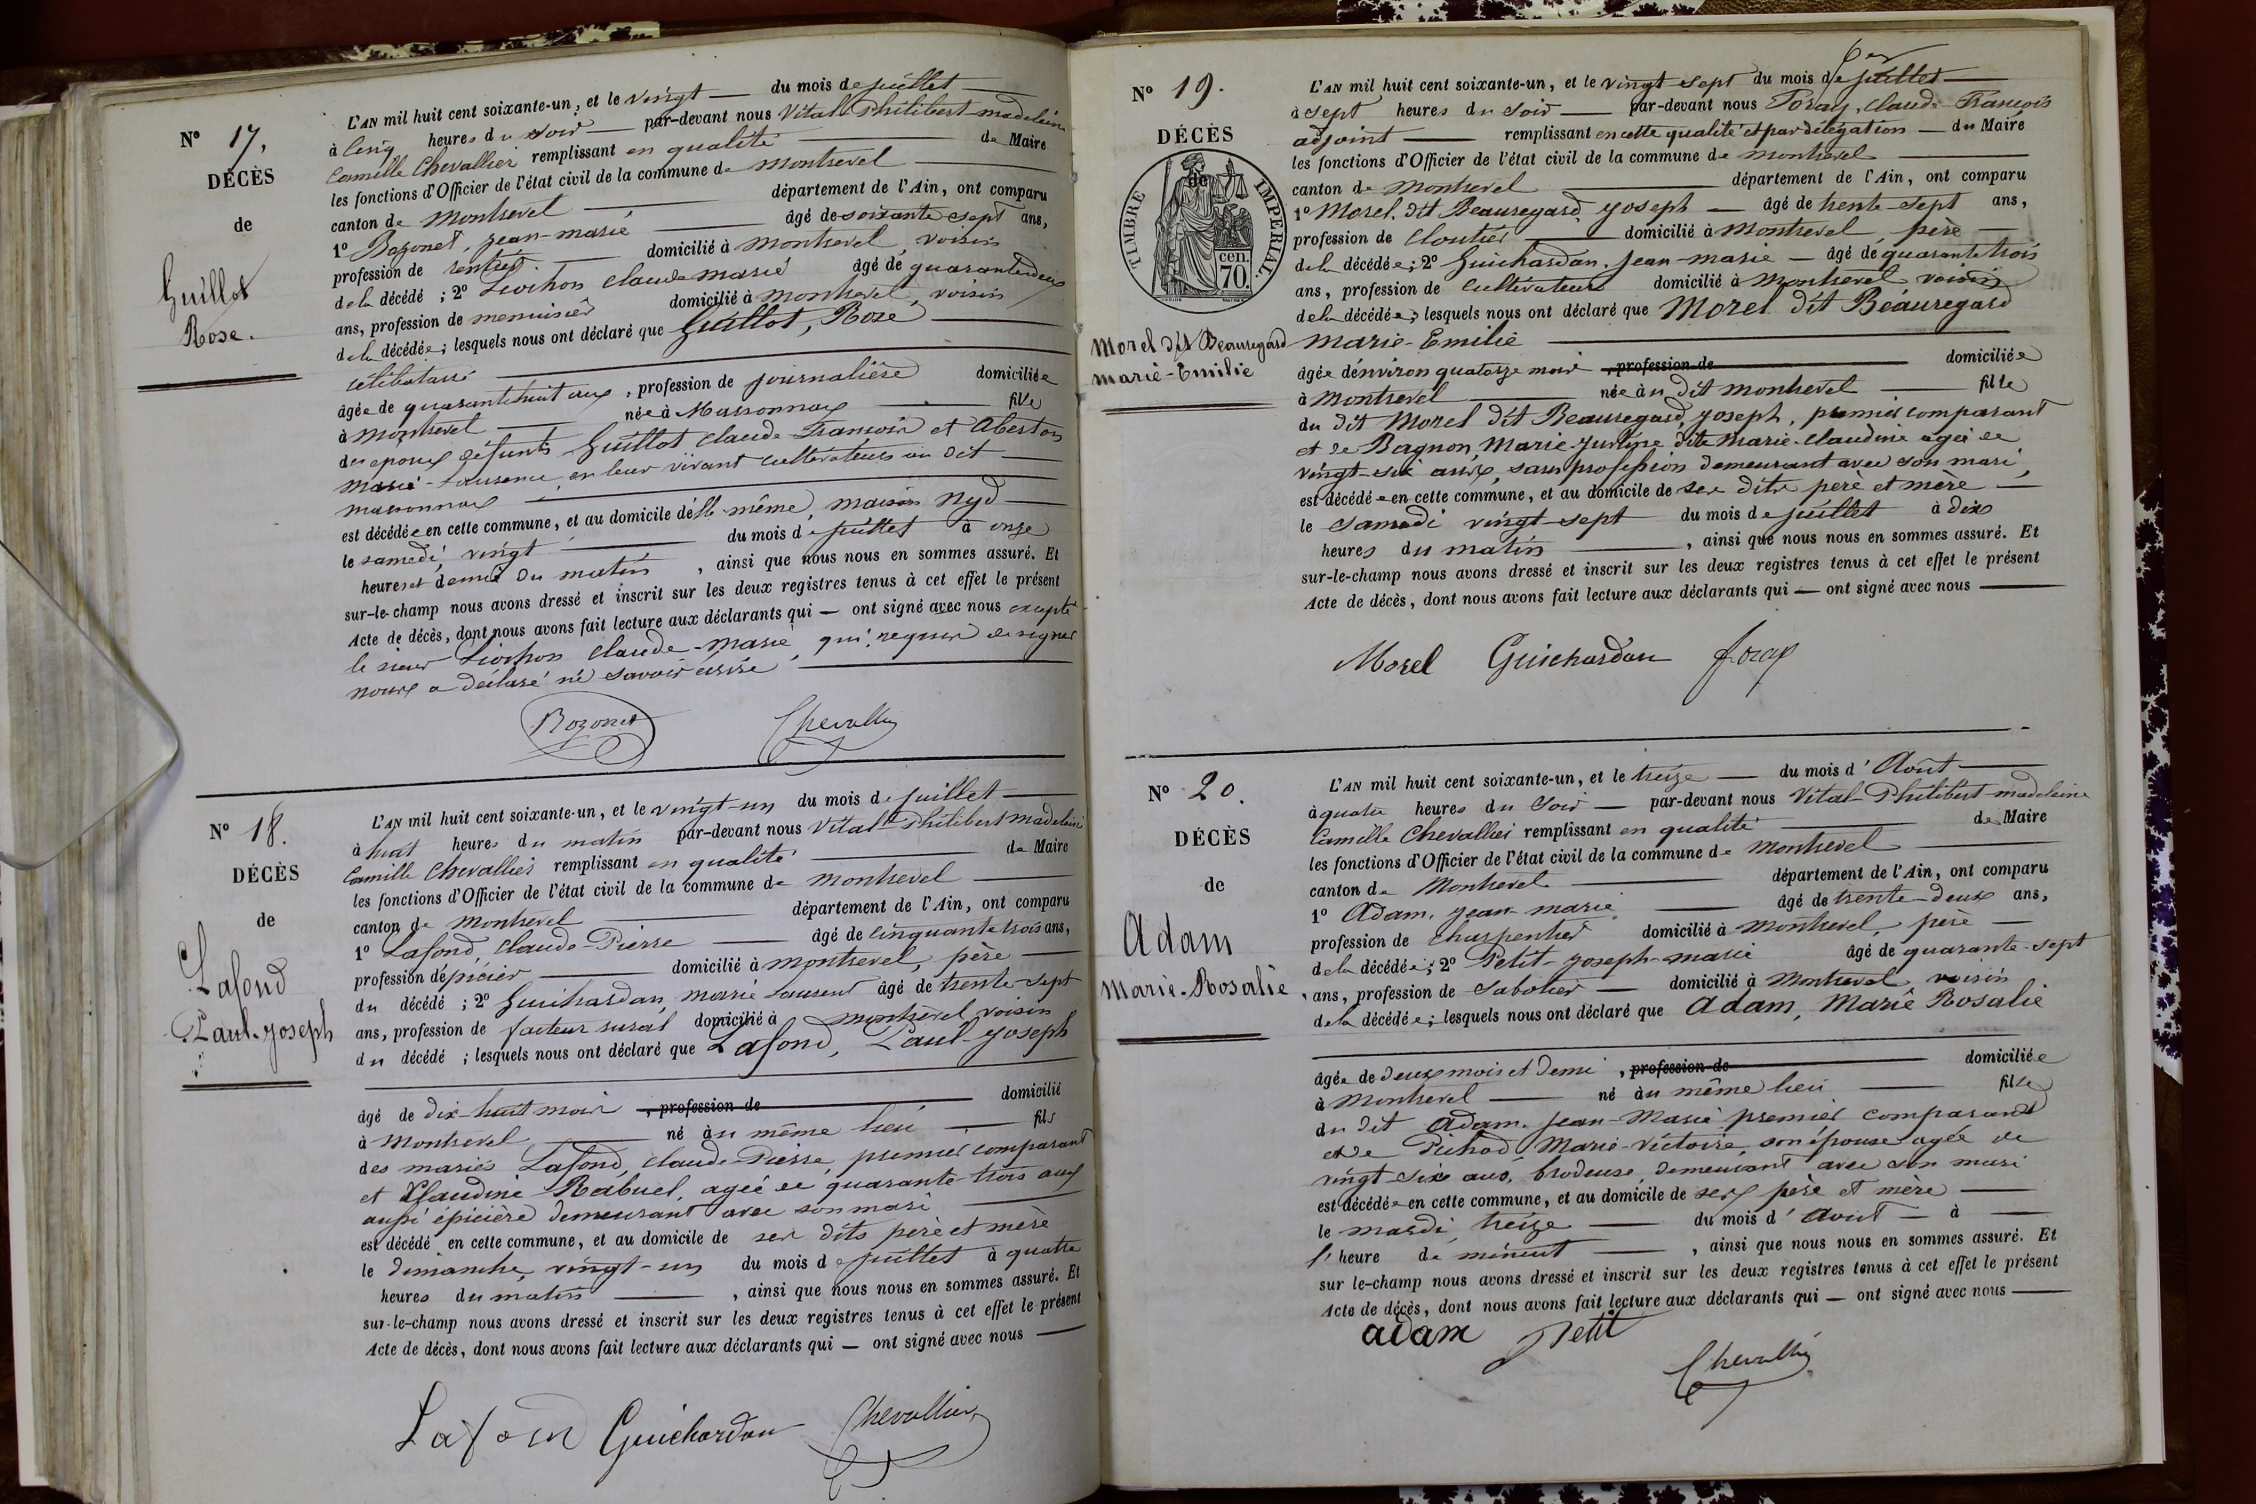 N° 17.
DÉCÈS
de
Guillot
Rose.
L'AN mil huit cent soixante-un, et le vingt — du mois de juillet —
à cinq heures du soir — par-devant nous Vital Philibert madeleine
Camille Chevallier remplissant en qualité — de Maire
les fonctions d'Officier de l'état civil de la commune de montrevel —
canton de montrevel — département de l'Ain, ont comparu
1° Bozonet, jean-marie — âgé de soixante sept ans,
profession de rentier — domicilié à montrevel, voisin
de la décédé ; 2° Liochon claude marie âgé de quarante deux
ans, profession de menuisier domicilié à montrevel, voisin
de la décédée ; lesquels nous ont déclaré que Guillot, Rose —
célibataire —
âgée de quarante huit ans, profession de journalière domiciliée
à montrevel — née à Marsonnax — fille
des epoux défunts Guillot claude François et
marie-Laurence, en leur vivant cultivateurs au dit —
marsonnax —
est décédée en cette commune, et au domicile d'elle même, maison nyd —
le samedi, vingt — du mois de juillet à onze
heures et demie du matin, ainsi que nous nous en sommes assuré. Et
sur-le-champ nous avons dressé et inscrit sur les deux registres tenus à cet effet le présent
Acte de décès, dont nous avons fait lecture aux déclarants qui — ont signé avec nous excepté
le sieur Liochon claude-marie, qui, requis de signer
nous a déclaré ne savoir écrire —
Bozonet Chevallier
N° 18.
DÉCÈS
de
Lafond
Paul-joseph
L'AN mil huit cent soixante-un, et le vingt-un du mois de juillet —
à huit heures du matin par-devant nous Vital-Philibert madeleine
Camille Chevallier remplissant en qualité — de Maire
les fonctions d'Officier de l'état civil de la commune de montrevel —
canton de montrevel — département de l'Ain, ont comparu
1° Lafond, claude-Pierre — âgé de cinquante trois ans,
profession d'épicier — domicilié à montrevel, père —
du décédé ; 2° Guichardan, marie Laurent âgé de trente-sept
ans, profession de facteur rural domicilié à montrevel, voisin
du décédé ; lesquels nous ont déclaré que Lafond, Paul-joseph
âgé de dix-huit mois, profession de — domicilié
à Montrevel — né au même lieu — fils
des mariés Lafond, claude-Pierre, premier comparant
et Claudine Rabuel, agée de quarante-trois ans
aussi épicière demeurant avec son mari —
est décédé en cette commune, et au domicile de ses dits père et mère
le dimanche, vingt-un du mois de juillet à quatre
heures du matin —, ainsi que nous nous en sommes assuré. Et
sur-le-champ nous avons dressé et inscrit sur les deux registres tenus à cet effet le présent
Acte de décès, dont nous avons fait lecture aux déclarants qui — ont signé avec nous —
Lafond Guichardan Chevallier
N° 19.
DÉCÈS
de
TIMBRE IMPÉRIAL.
cen.
70.
Morel dit Beauregard
marie-Emilie
L'AN mil huit cent soixante-un, et le vingt sept du mois de juillet —
à sept heures du soir — par-devant nous Poray, claude-François
adjoint — remplissant en cette qualité et par délégation — du Maire
les fonctions d'Officier de l'état civil de la commune de montrevel —
canton de montrevel — département de l'Ain, ont comparu
1° Morel, dit Beauregard, joseph — âgé de trente-sept ans,
profession de cloutier — domicilié à montrevel, père —
de la décédée ; 2° Guichardan, jean-marie — âgé de quarante trois
ans, profession de cultivateur domicilié à montrevel voisin
de la décédée ; lesquels nous ont déclaré que Morel dit Beauregard
marie-Emilie —
âgée d'environ quatorze mois, profession de — domiciliée
à montrevel — née au dit montrevel — fille
du dit Morel dit Beauregard, joseph, premier comparant
et de Bagnon, Marie-Justine dite marie-claudine agée de
vingt-six ans, sans profession demeurant avec son mari,
est décédée en cette commune, et au domicile de ses dits père et mère —
le samedi vingt-sept du mois de juillet à dix
heures du matin —, ainsi que nous nous en sommes assuré. Et
sur-le-champ nous avons dressé et inscrit sur les deux registres tenus à cet effet le présent
Acte de décès, dont nous avons fait lecture aux déclarants qui — ont signé avec nous —
Morel Guichardan
N° 20.
DÉCÈS
de
Adam
Marie-Rosalie.
L'AN mil huit cent soixante-un, et le treize — du mois d'Août —
à quatre heures du soir — par-devant nous Vital-Philibert madeleine
Camille Chevallier remplissant en qualité — de Maire
les fonctions d'Officier de l'état civil de la commune de montrevel —
canton de Montrevel — département de l'Ain, ont comparu
1° Adam, jean-marie — âgé de trente-deux ans,
profession de charpentier domicilié à montrevel, père —
de la décédée ; 2° Petit joseph-marie âgé de quarante-sept
ans, profession de sabotier — domicilié à Montrevel, voisin
de la décédée ; lesquels nous ont déclaré que Adam, Marie Rosalie
âgée de deux mois et demi, profession de — domiciliée
à Montrevel — né au même lieu — fille
du dit Adam, jean-Marie premier comparant
et de Pichod, Marie-Victoire, son épouse agée de
vingt-six ans, brodeuse, demeurant avec son mari
est décédée en cette commune, et au domicile de ses père et mère —
le mardi, treize — du mois d'Aout — à —
l'heure de minuit —, ainsi que nous nous en sommes assuré. Et
sur le-champ nous avons dressé et inscrit sur les deux registres tenus à cet effet le présent
Acte de décès, dont nous avons fait lecture aux déclarants qui — ont signé avec nous —
adam Petit
Chevallier